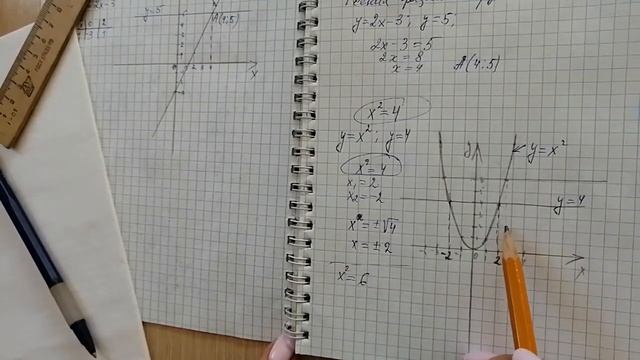 y=5
A(4;5)
x
y=2x-3; y=5,
2x-3=5
2x=8
x=4
A(4;5)
x²=4
y=x²; y=4
x²=4
x₁=2
x₂=-2
x=±√4
x=±2
x²=6
y
y=x²
y=4
-2
2
x